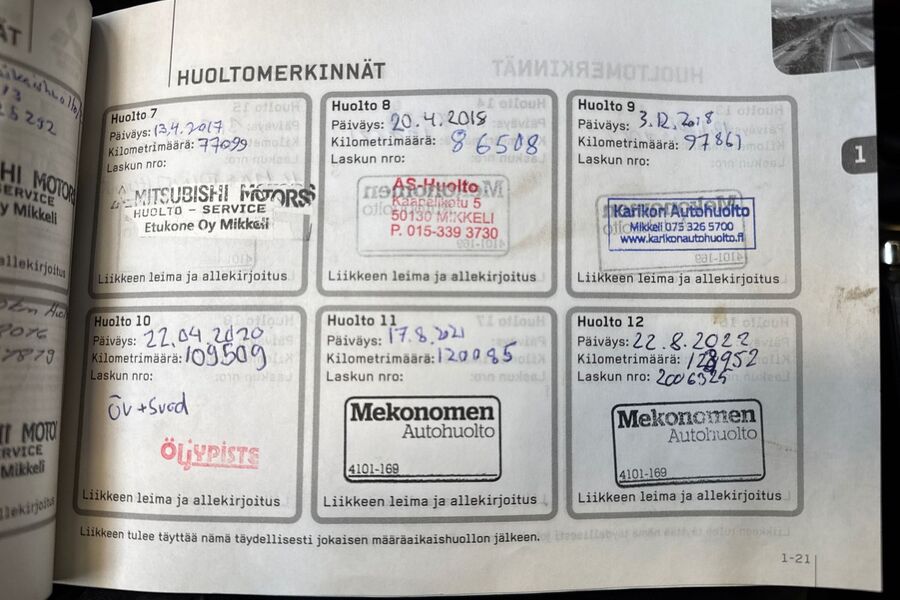 HUOLTOMERKINNÄT
Huolto 7
Päiväys: 13.4.2017
Kilometrimäärä: 77099
Laskun nro:
MITSUBISHI MOTORS
HUOLTO - SERVICE
Etukone Oy Mikkeli
Liikkeen leima ja allekirjoitus
Huolto 8
Päiväys: 20.4.2018
Kilometrimäärä: 86508
Laskun nro:
AS-Huolto
Kaapelikatu 5
50130 MIKKELI
P. 015-339 3730
Liikkeen leima ja allekirjoitus
Huolto 9
Päiväys: 3.12.2018
Kilometrimäärä: 97861
Laskun nro:
Karikon Autohuolto
Mikkeli 075 326 5700
www.karikonautohuolto.fi
Liikkeen leima ja allekirjoitus
1
Huolto 10
Päiväys: 22.04.2020
Kilometrimäärä: 109509
Laskun nro:
Öv + Suod
ÖLJYPISTE
Liikkeen leima ja allekirjoitus
Huolto 11
Päiväys: 17.8.2021
Kilometrimäärä: 120085
Laskun nro:
Mekonomen
Autohuolto
4101-169
Liikkeen leima ja allekirjoitus
Huolto 12
Päiväys: 22.8.2022
Kilometrimäärä:
Laskun nro: 2006325
Mekonomen
Autohuolto
4101-169
Liikkeen leima ja allekirjoitus
Liikkeen tulee täyttää nämä täydellisesti jokaisen määräaikaishuollon jälkeen.
1-21